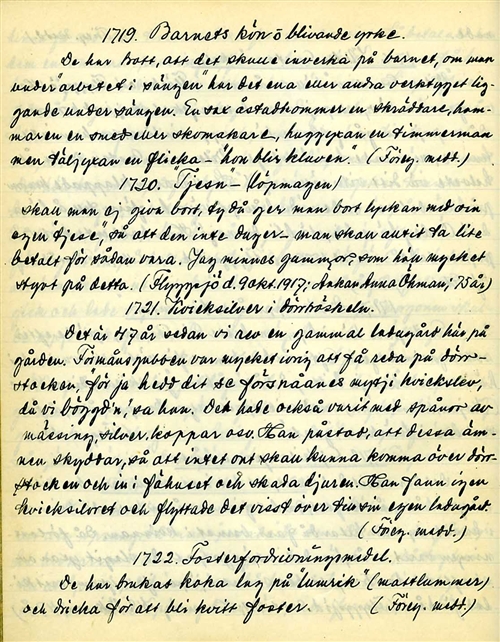 1719. Barnets kön o blivande yrke.
De har trott, att det skulle inverka på barnet, om man
under "arbetet i sängen" har det ena eller andra verktyget lig-
gande under sängen. En sax åstadkommer en skräddare, ham-
maren en smed eller skomakare, huggyxan en timmerman
men täljyxan en flicka – "hon blir kluven." (Föreg. medd.)
1720. "Tjesn" – (löpmagen)
skall man ej giva bort, ty då ger man bort lyckan med sin
egen "tjese", så att den inte duger – man skall alltid ta lite
betalt för sådan vara. Jag minnes gammor som höll mycket
styvt på detta. (Flyggsjö d. 9 okt. 1917; Änkan Anna Öhman, 75 år)
1721. Kvicksilver i dörrtröskeln.
Det är 47 år sedan vi rev en gammal ladugård här på
gården. Förmånsgubben var mycket ivrig att få reda på dörr-
stocken, för ja hedd dit se försnåanes mytji kvickselv,
då vi böggd'n,' sa han. Det hade också varit med spånor av
mässing, silver, koppar osv. Han påstod, att dessa äm-
nen skyddar, så att intet ont skall kunna komma över dörr-
stocken och in i fähuset och skada djuren. Han fann igen
kvicksilvret och flyttade det visst över till sin egen ladugård.
(Föreg. medd.)
1722. Fosterfördrivningsmedel.
De har brukat koka lag på "lumrik" (mattlummer)
och dricka för att bli kvitt foster. (Föreg. medd.)